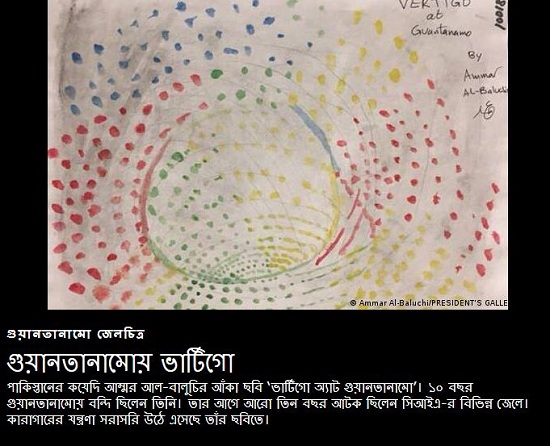 VERTIGO
at
Guantanamo
By
Ammar
Al-Baluchi
© Ammar Al-Baluchi/PRESIDENT'S GALLE
গুয়ানতানামো জেলচিত্র
গুয়ানতানামোয় ভার্টিগো
পাকিস্তানের কয়েদি আম্মর আল-বালুচির আঁকা ছবি ‘ভার্টিগো অ্যাট গুয়ানতানামো’। ১০ বছর
গুয়ানতানামোয় বন্দি ছিলেন তিনি। তার আগে আরো তিন বছর আটক ছিলেন সিআইএ-র বিভিন্ন জেলে।
কারাগারের যন্ত্রণা সরাসরি উঠে এসেছে তাঁর ছবিতে।